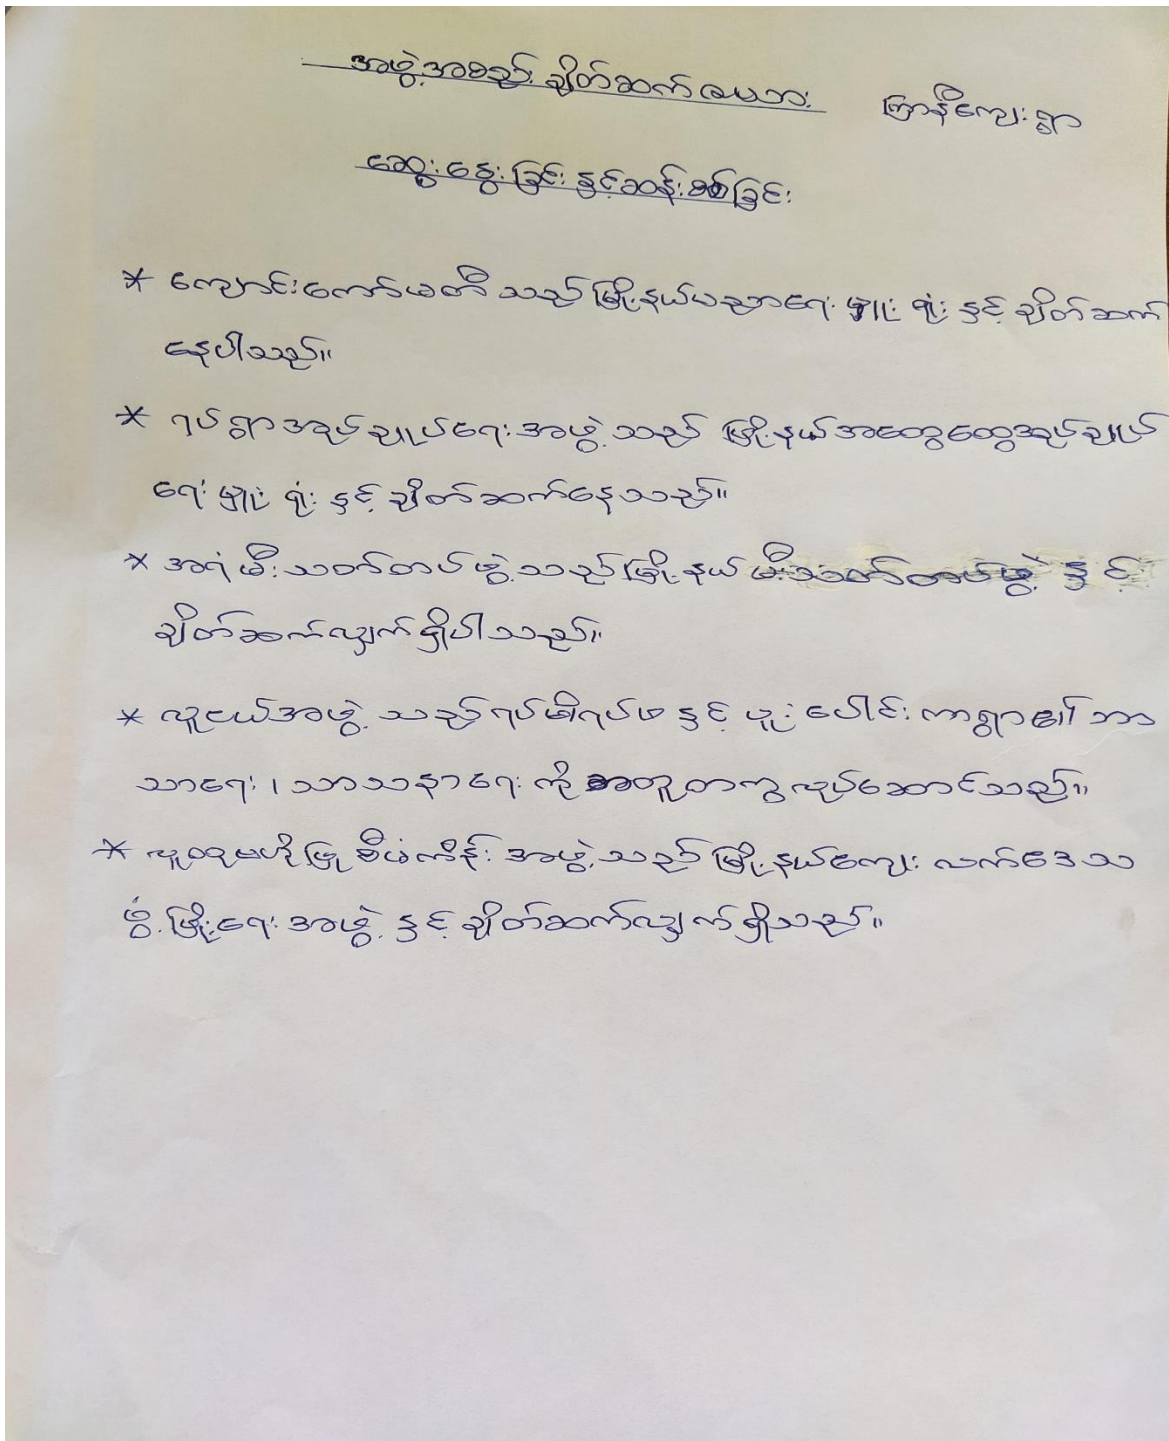 အဖွဲ့အစည်း ချိတ်ဆက်ဇယား ကြာနီကျေးရွာ
ဆွေးနွေးခြင်းနှင့်ဆန်းစစ်ခြင်း
* ကျောင်းကော်မတီ သည် မြို့နယ်ပညာရေး မှူး ရုံး နှင့် ချိတ်ဆက်
နေပါသည်။
* ရပ်ရွာအုပ်ချုပ်ရေးအဖွဲ့သည် မြို့နယ်အထွေထွေအုပ်ချုပ်
ရေးမှူး ရုံး နှင့် ချိတ်ဆက်နေသည်။
* အရံမီးသတ်တပ်ဖွဲ့သည်မြို့နယ် မီးသတ်တပ်ဖွဲ့ နှင့်
ချိတ်ဆက်လျှက်ရှိပါသည်။
* လူငယ်အဖွဲ့ သည်ရပ်မိရပ်ဖ နှင့် ပူးပေါင်းကာရွာ၏ ဘာ
သာရေး၊ သာသနာရေး ကို အတူတကွလုပ်ဆောင်သည်။
* လူထုဗဟိုပြုစီမံကိန်း အဖွဲ့သည် မြို့နယ်ကျေးလက်ဒေသ
ဖွံ့ဖြိုးရေးအဖွဲ့ နှင့် ချိတ်ဆက်လျှက်ရှိသည်။